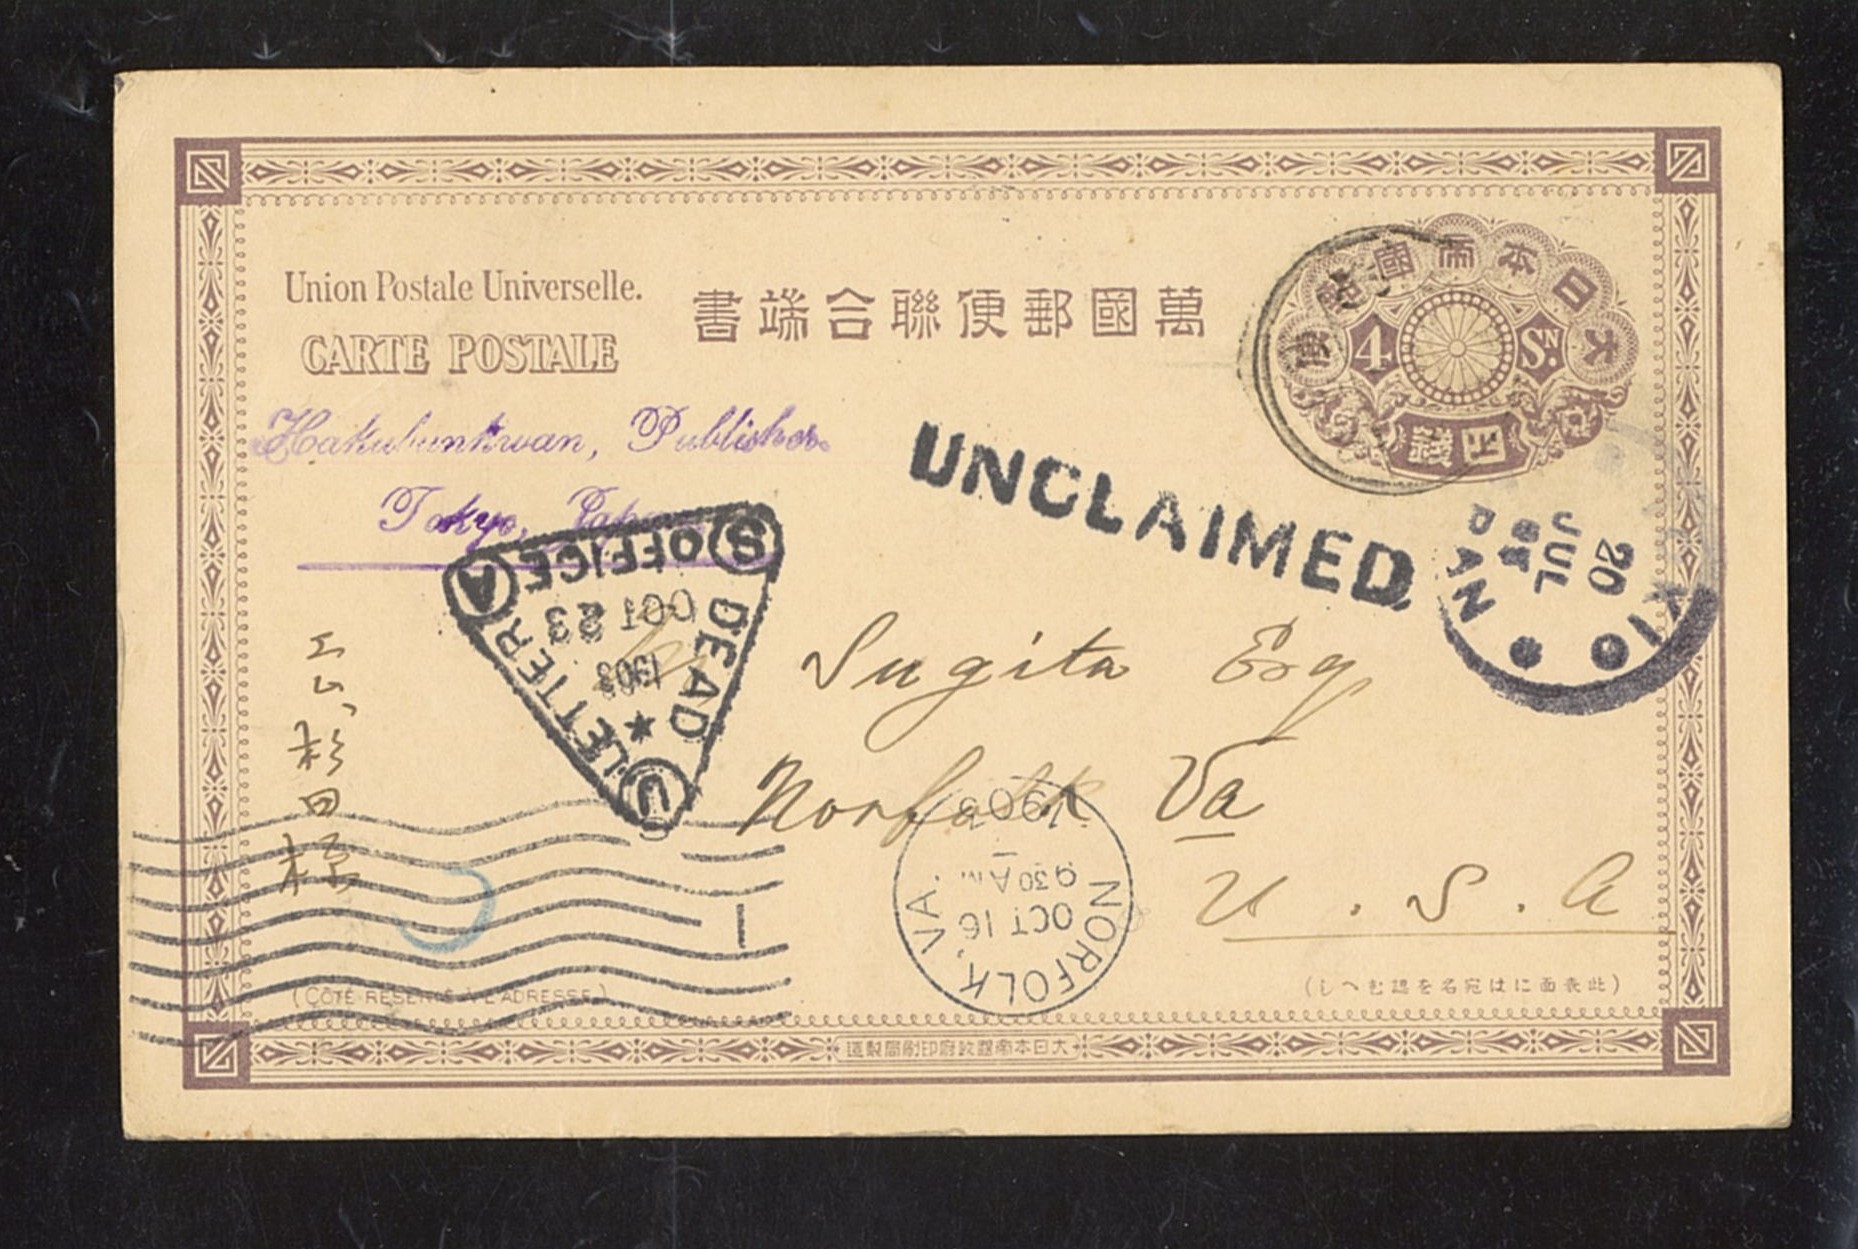 Union Postale Universelle.
CARTE POSTALE
書端合聯便郵國萬
便郵國帝本日大
4 SN.
錢四
Hakubunkwan, Publisher.
Tokyo, Japan
UNCLAIMED.
20
JUL
DEAD LETTER OFFICE
U S A
OCT 23
1903
Sugita Esq
Norfolk Va
U. S. A
杉
田
様
NORFOLK, VA.
OCT 16
930 AM.
1903
(CÔTÉ RÉSERVÉ À L'ADRESSE.)
(しへむ認を名宛はに面表此)
造製局刷印府政國帝本日大